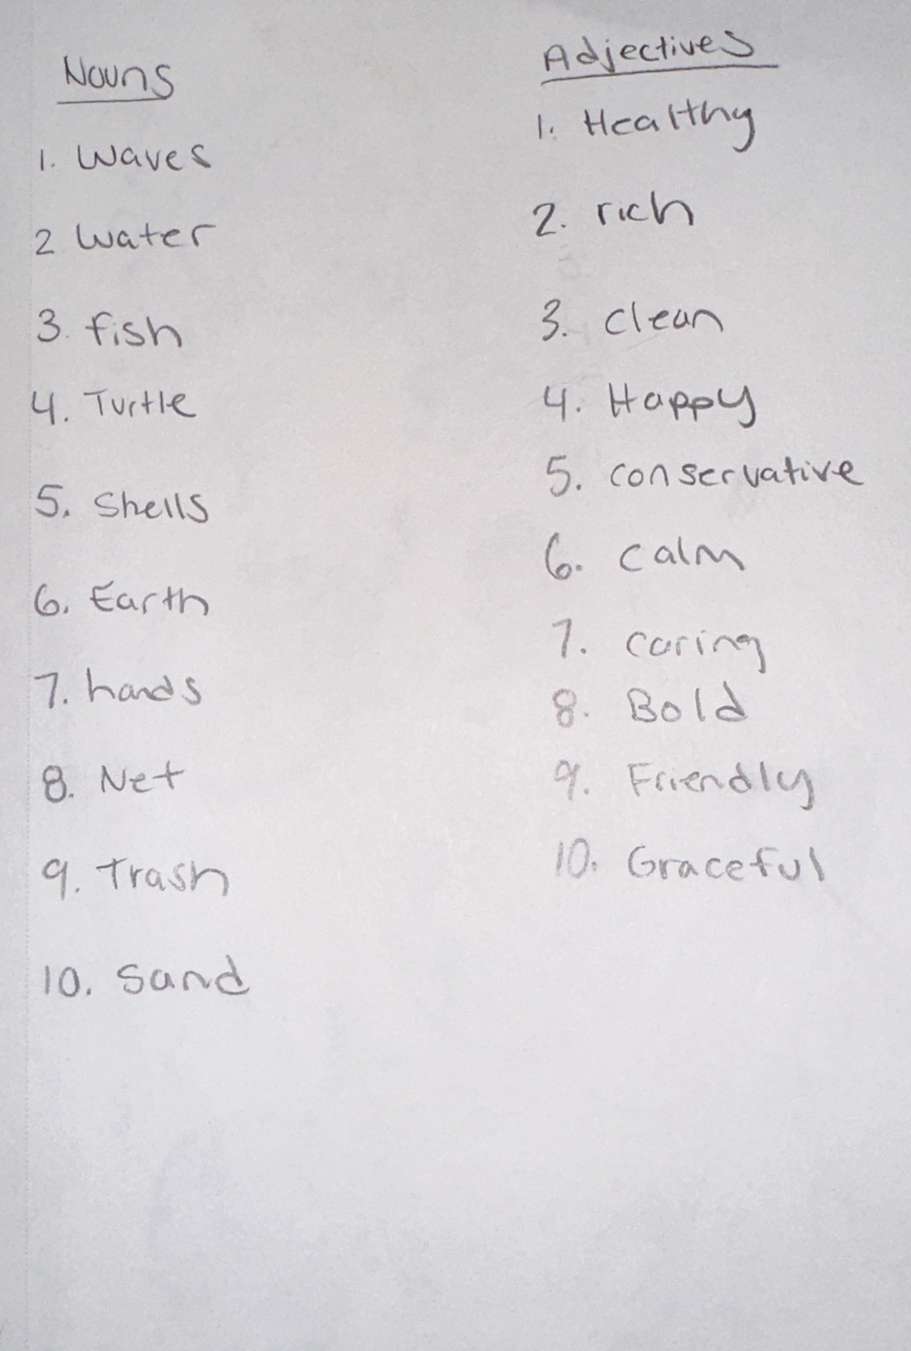 Nouns
1. Waves
2. Water
3. fish
4. Turtle
5. Shells
6. Earth
7. hands
8. Net
9. Trash
10. Sand
Adjectives
1. Healthy
2. rich
3. clean
4. Happy
5. conservative
6. calm
7. caring
8. Bold
9. Friendly
10. Graceful